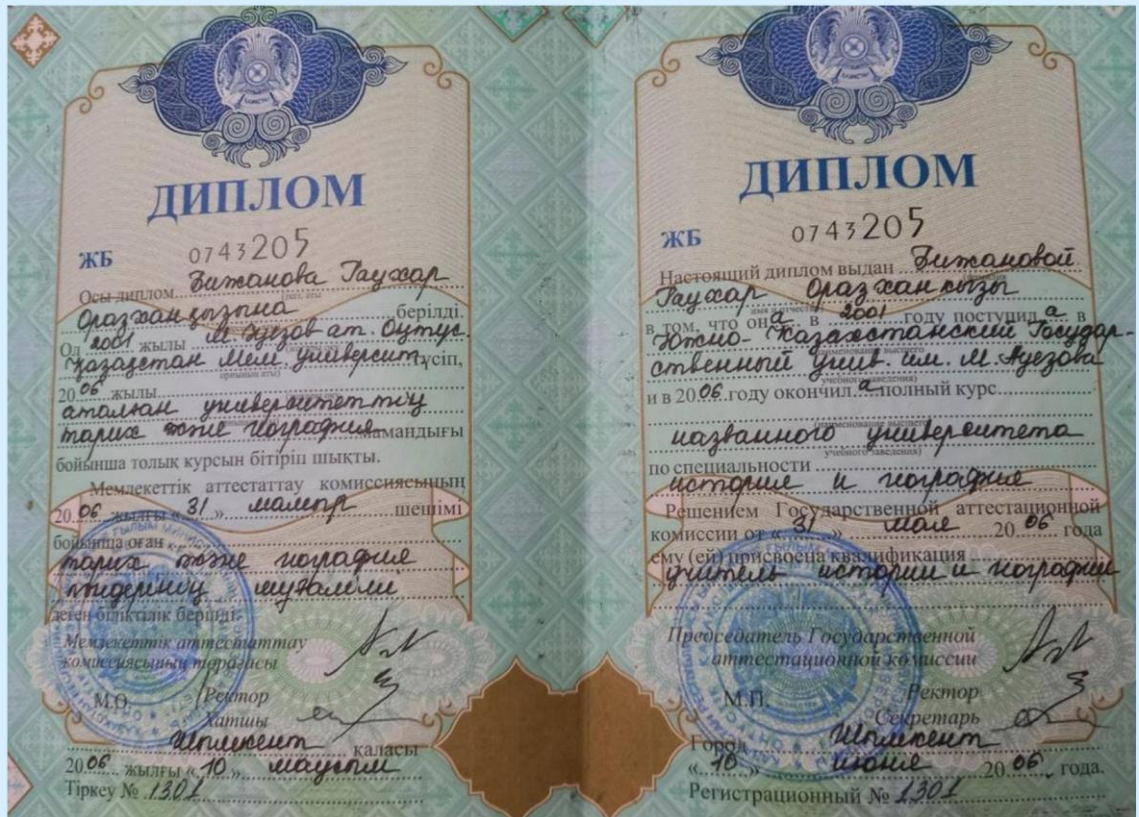 ДИПЛОМ
ЖБ 0743205
Осы диплом Бижанова Гаухар
Оразханқызына берілді.
Ол 2001 жылы М.Әуезов ат. Оңтүс.
Қазақстан Мем. университ. түсіп,
2006 жылы
аталған университеттің
тарих және география мамандығы
бойынша толық курсын бітіріп шықты.
Мемлекеттік аттестаттау комиссиясының
2006 жылғы «31» мамыр шешімі
бойынша оған
тарих және география
пәндерінің мұғалімі
деген біліктілік берілді.
Мемлекеттік аттестаттау
комиссиясының төрағасы
М.О. Ректор
Хатшы
Шымкент қаласы
2006 жылғы «10» маусым
Тіркеу № 1301
ДИПЛОМ
ЖБ 0743205
Настоящий диплом выдан Бижановой
Гаухар Оразханкызы
имя и отчество
в том, что она в 2001 году поступила в
Южно-Казахстанский Государ-
ственный унив. им. М. Ауезова
учебного заведения)
и в 2006 году окончила полный курс
(наименование высшего
названного университета
учебного заведения)
по специальности
история и география
Решением Государственной аттестационной
комиссии от «31» мая 2006 года
ему (ей) присвоена квалификация
учитель истории и географии
Председатель Государственной
аттестационной комиссии
М.П. Ректор
Секретарь
Город Шымкент
«10» июня 2006 года.
Регистрационный № 1301